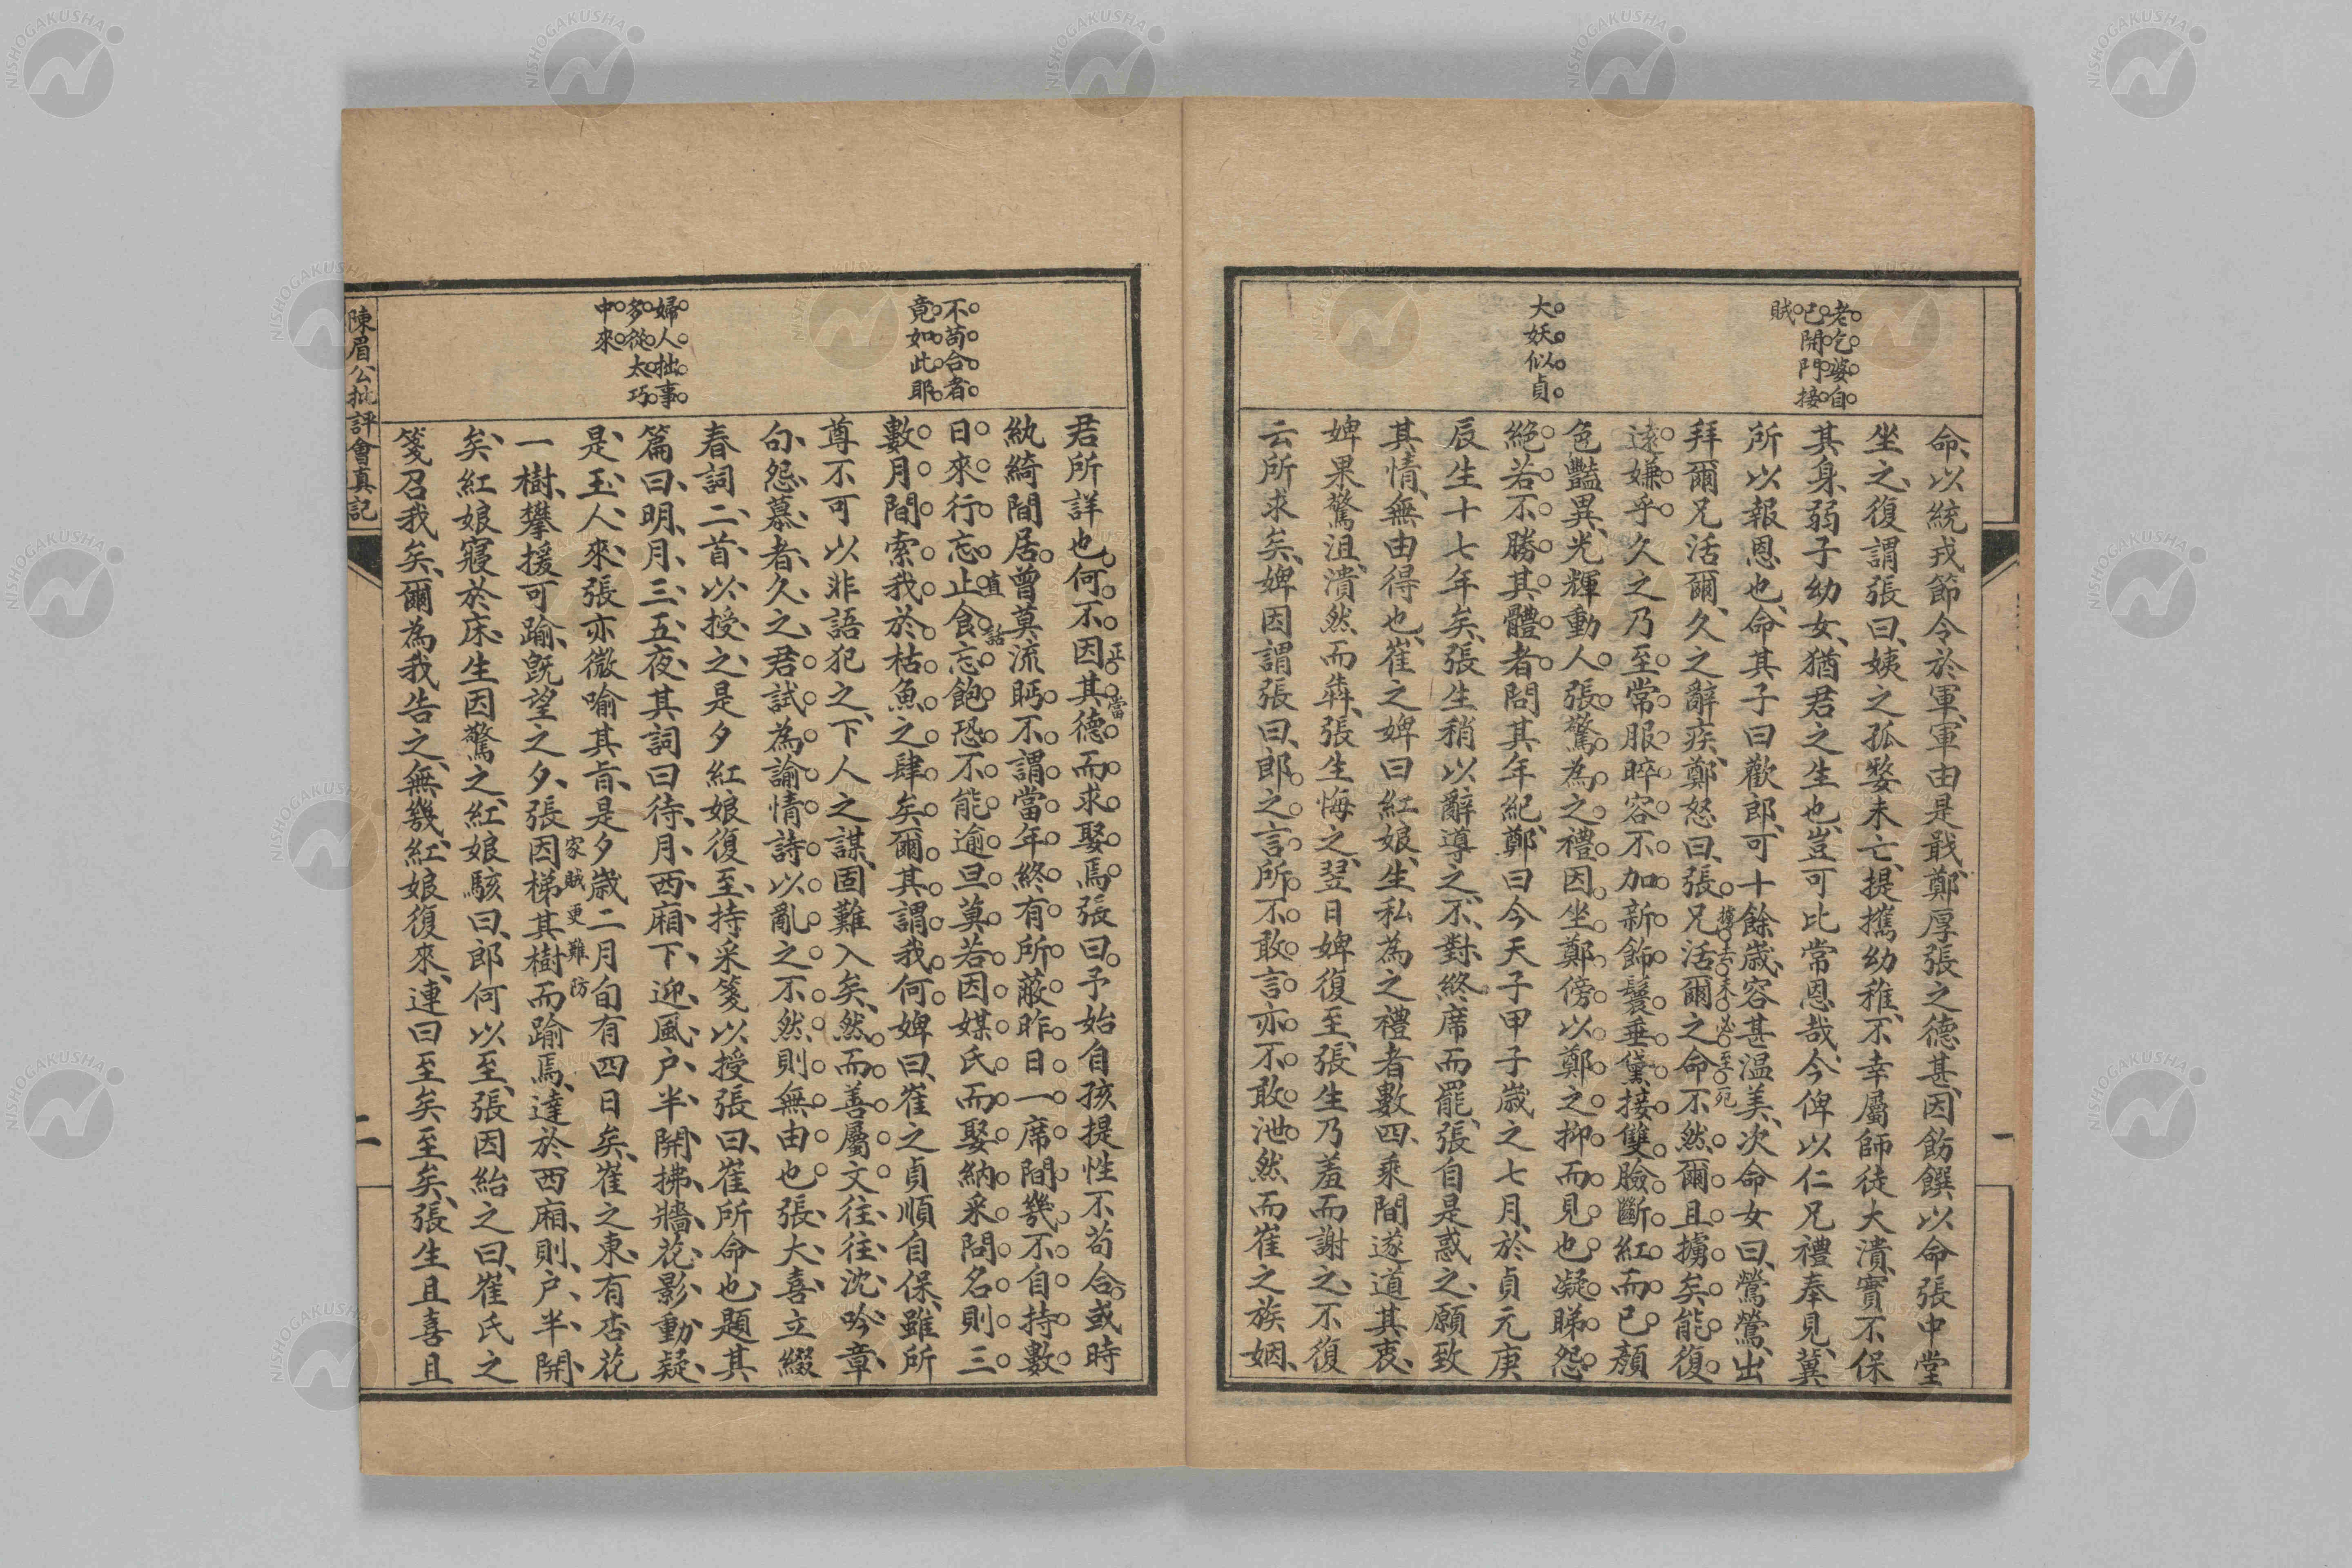 老乞婆自
己開門接
賊
大妖似貞
命、以統戎節、令於軍、軍由是戢、鄭厚張之德甚、因飭饌以命張中堂
坐之、復謂張曰、姨之孤嫠未亡、提攜幼稚、不幸屬師徒大潰、實不保
其身、弱子幼女、猶君之生也、豈可比常恩哉、今俾以仁兄禮奉見、冀
所以報恩也、命其子曰歡郎、可十餘歲、容甚温美、次命女曰、鶯鶯、出
拜爾兄活爾、久之辭疾、鄭怒曰、張兄活爾之命不然爾且擄矣能復
遠嫌乎久之乃至常服睟容不加新飾鬟垂黛接雙臉斷紅而已顏
色豔異、光輝動人張驚為之禮因坐鄭傍以鄭之抑而見也凝睇怨
絕若不勝其體者問其年紀、鄭曰今天子甲子歲之七月、於貞元庚
辰生十七年矣、張生稍以辭導之、不對、終席而罷、張自是惑之、願致
其情、無由得也、崔之婢曰紅娘、生私為之禮者數四、乘間遂道其衷、
婢果驚沮、潰然而犇、張生悔之、翌日婢復至、張生乃羞而謝之、不復
云所求矣、婢因謂張曰、郎之言所不敢言亦不敢泄然而崔之族姻、
一
不苟合者
竟如此耶
婦人拙事
多從太巧
中來
君所詳也何不因其德而求娶焉張曰予始自孩提性不苟合或時
正當
紈綺間居曾莫流眄不謂當年終有所蔽昨日一席間幾不自持數
直話
日來行忘止食忘飽恐不能逾旦莫若因媒氏而娶納采問名則三
數月間索我於枯魚之肆矣爾其謂我何婢曰、崔之貞順自保、雖所
尊不可以非語犯之、下人之謀、固難入矣、然而善屬文往往沈吟章
句怨慕者、久之、君試為諭情詩以亂之不然則無由也張大喜立綴
春詞二首以授之、是夕紅娘復至、持采箋以授張曰、崔所命也、題其
篇曰明月三五夜、其詞曰待月西廂下、迎風户半開、拂牆花影動、疑
是玉人來、張亦微喻其旨、是夕歲二月旬有四日矣、崔之東、有杏花
家賊更難防
一樹、攀援可踰、既望之夕、張因梯其樹而踰焉、達於西廂、則户半開
矣、紅娘寢於床、生因驚之、紅娘駭曰、郎何以至、張因紿之曰、崔氏之
箋召我矣、爾為我告之、無幾、紅娘復來、連曰至矣至矣、張生且喜且
陳眉公批評會真記
二